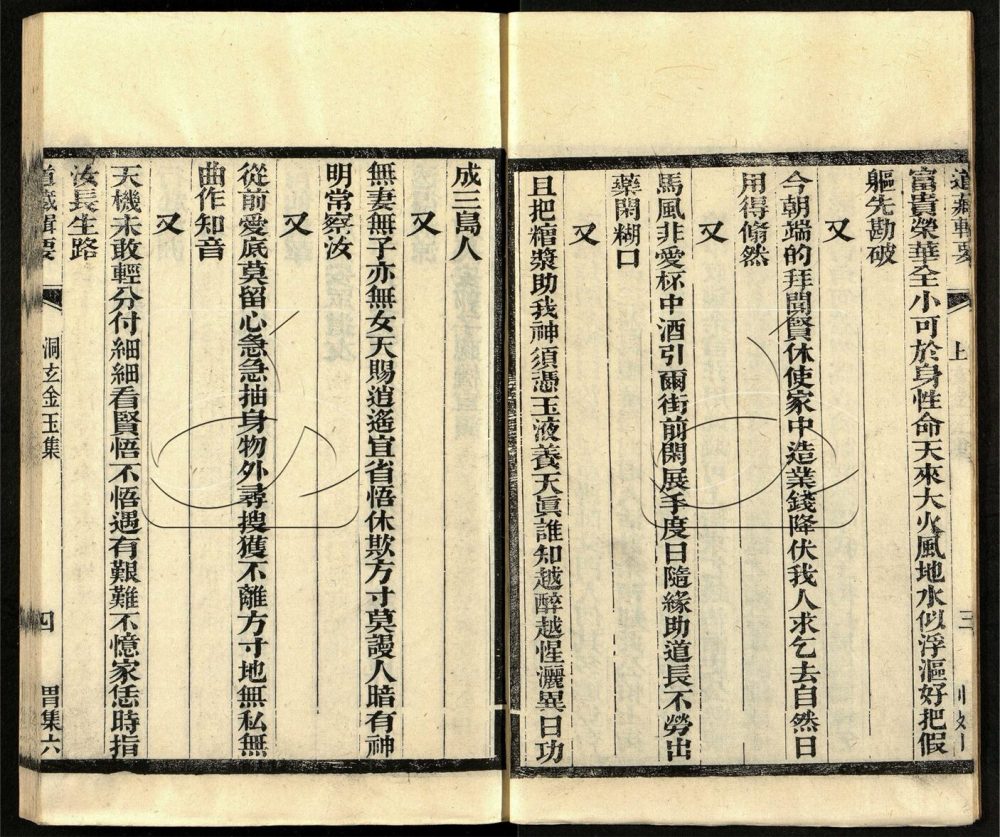 富貴榮華全小可於身性命天來大火風地水似浮漚好把假
軀先勘破
又
今朝端的拜閑賢休使家中造業錢降伏我人求乞去自然日
用得翛然
又
馬風非愛杯中酒引爾街前閑展手度日隨緣助道長不勞出
藥閑糊口
又
且把糟漿助我神須憑玉液養天眞誰知越醉越惺灑異日功
成三島人
又
無妻無子亦無女天賜逍遙宜省悟休欺方寸莫謾人暗有神
明常察汝
又
從前愛底莫留心急急抽身物外尋搜獲不離方寸地無私無
曲作知音
又
天機未敢輕分付細細看賢悟不悟遇有艱難不憶家恁時指
汝長生路
道藏輯要
洞玄金玉集
四
胃集六